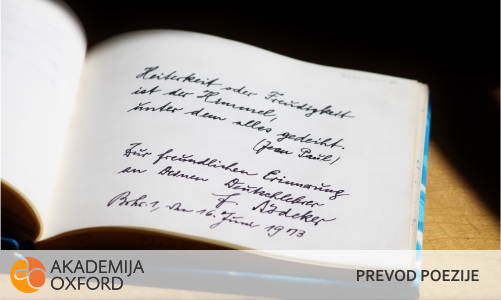 Heiterkeit oder Freudigkeit
ist der Himmel,
unter dem alles gedeiht.
(Jean Paul)
Zur freundlichen Erinnerung
an Deinen Deutschlehrer
F. Rödeker
den 16. Juni 1973
AKADEMIJA
OXFORD
PREVOD POEZIJE